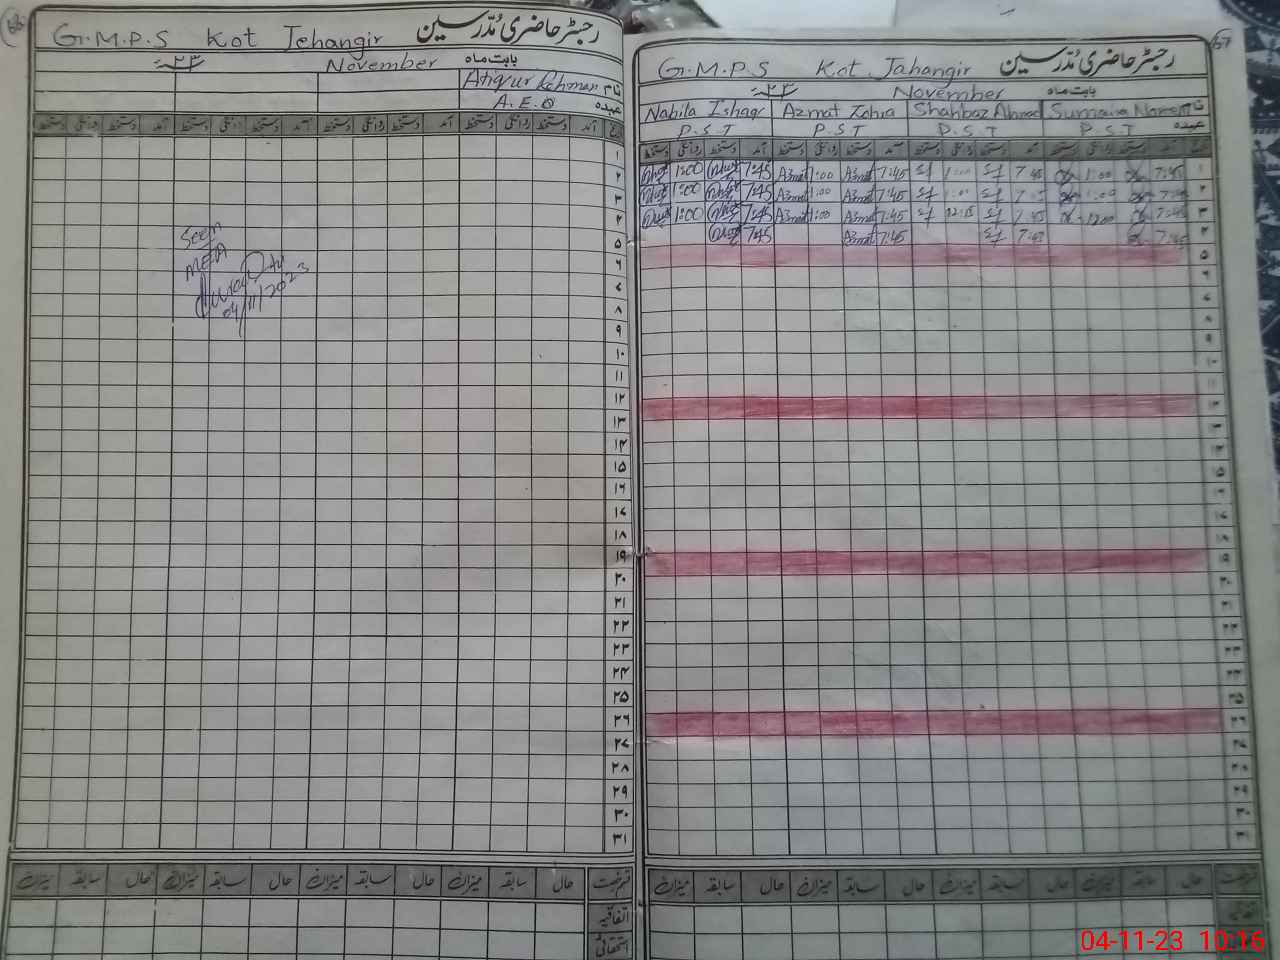 66
G.M.P.S Kot Jehangir رجسٹر حاضری مُدّرسین
۲۳ November بابت ماہ
Atiqur Rehman نام
A.E.O عہدہ
دستخط روانگی دستخط آمد دستخط روانگی دستخط آمد دستخط روانگی دستخط آمد دستخط روانگی دستخط آمد
۱
۲
۳
۴
۵
۶
۷
۸
۹
۱۰
۱۱
۱۲
۱۳
۱۴
۱۵
۱۶
۱۷
۱۸
۱۹
۲۰
۲۱
۲۲
۲۳
۲۴
۲۵
۲۶
۲۷
۲۸
۲۹
۳۰
۳۱
Seen
MEA
04/11/2023
میزان سابقہ حال میزان سابقہ حال میزان سابقہ حال میزان سابقہ حال قسم رخصت
اتفاقیہ
استحقاقی
67
G.M.P.S Kot Jahangir رجسٹر حاضری مُدّرسین
۲۳ November بابت ماہ
Nabila Ishaqr Azmat Zohra Shahbaz Ahmad Sumaira Nareem نام
P.S.T P.S.T P.S.T P.S.T عہدہ
دستخط روانگی دستخط آمد دستخط روانگی دستخط آمد دستخط روانگی دستخط آمد دستخط روانگی دستخط آمد
1:00 7:45 Azmat 1:00 Azmat 7:45 1:00 7:45 1:00 7:45 ۱
1:00 7:45 Azmat 1:00 Azmat 7:45 1:00 7:45 1:00 7:45 ۲
1:00 7:45 Azmat 1:00 Azmat 7:45 12:15 7:45 12:00 7:45 ۳
7:45 Azmat 7:45 7:45 7:45 ۴
۵
۶
۷
۸
۹
۱۰
۱۱
۱۲
۱۳
۱۴
۱۵
۱۶
۱۷
۱۸
۱۹
۲۰
۲۱
۲۲
۲۳
۲۴
۲۵
۲۶
۲۷
۲۸
۲۹
۳۰
۳۱
میزان سابقہ حال میزان سابقہ حال میزان سابقہ حال میزان سابقہ حال قسم رخصت
اتفاقیہ
04-11-23 10:16